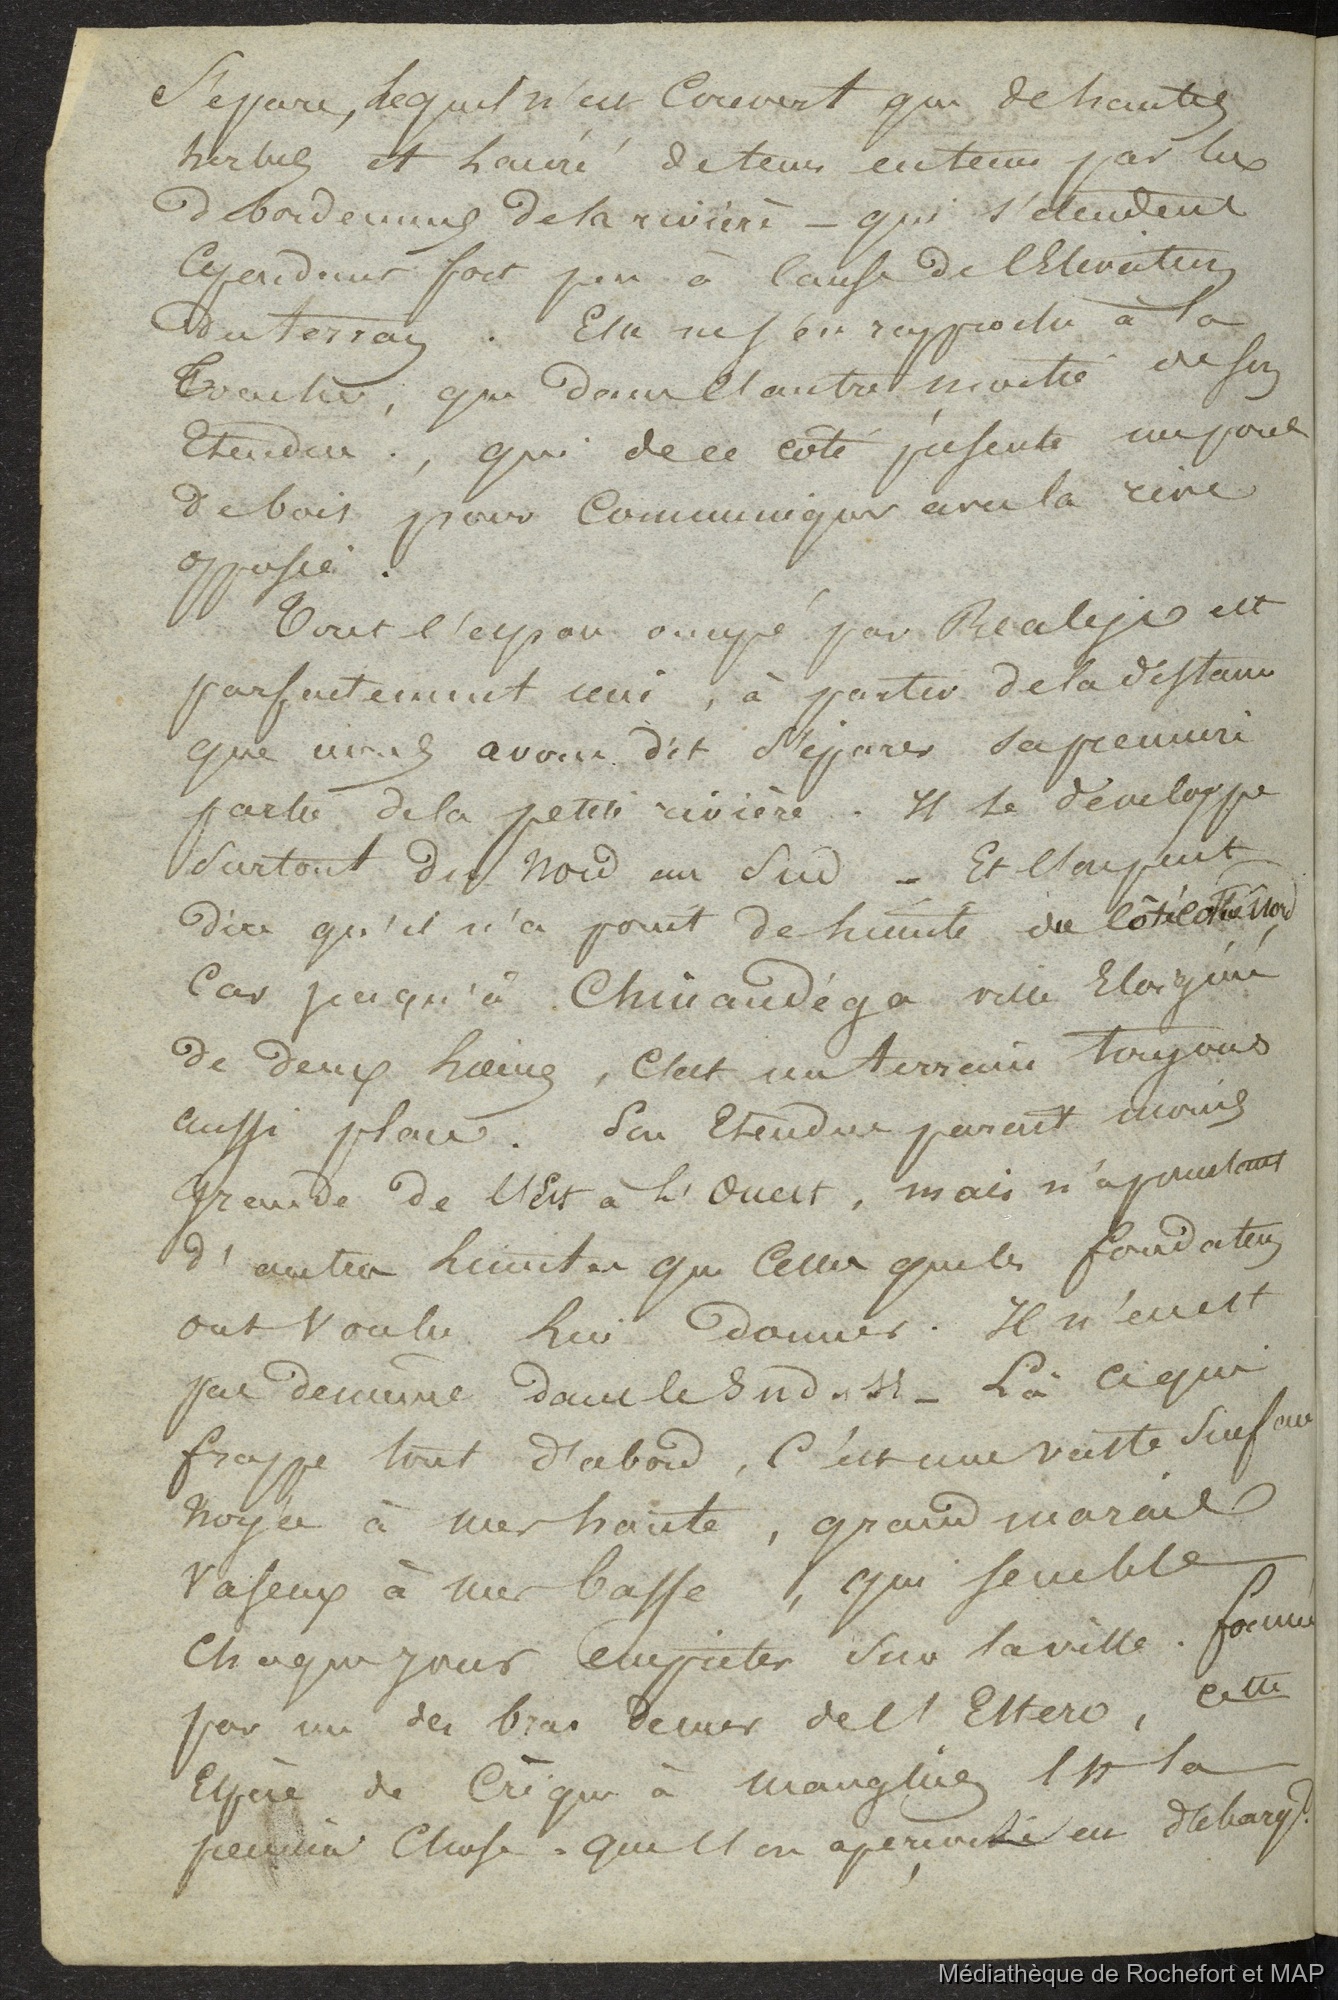 Separe, lequel n'est Couvert que de hautes
herbes et havré de tems en tems par les
debordemens de la rivière – qui s'etendent
Cependant fort peu à Cause de l'Elevation
du terrain. Elle ne s'en rapproche à la
toucher, que dans l'autre moitié de son
Etendue., qui de ce côté présente un pont
de bois pour Communiquer avec la rive
opposée.
Tout l'espace occupé par Realejo est
parfaitement uni, à partir de la distance
que nous avons dit Séparer sa premiere
partie de la petite rivière. Il se développe
Surtout du Nord au Sud – Et l'on peut
dire qu'il n'a point de limite du Côté du Nord
Car jusqu'à Chinandéga ville Eloignée
de deux lieues, c'est un terrain toujours
aussi plane. Son Etendue parait moins
grande de l'Est à l'Ouest, mais n'a pourtant
d'autres limites que Celles que les fondateurs
ont Voulu lui donner. Il n'en est
pas de même dans le Sud – Là ce qui
frappe tout d'abord, C'est une vaste Surface
Noyée à mer haute, grand marais
Vaseux à mer basse, qui semble
Chaque jour Empiéter sur la ville. formé
par un des bras de mer de l'Estero, cette
Espèce de Crique à mangliers Est la
premiere Chose que l'on aperçoive en debarqt.
Médiathèque de Rochefort et MAP